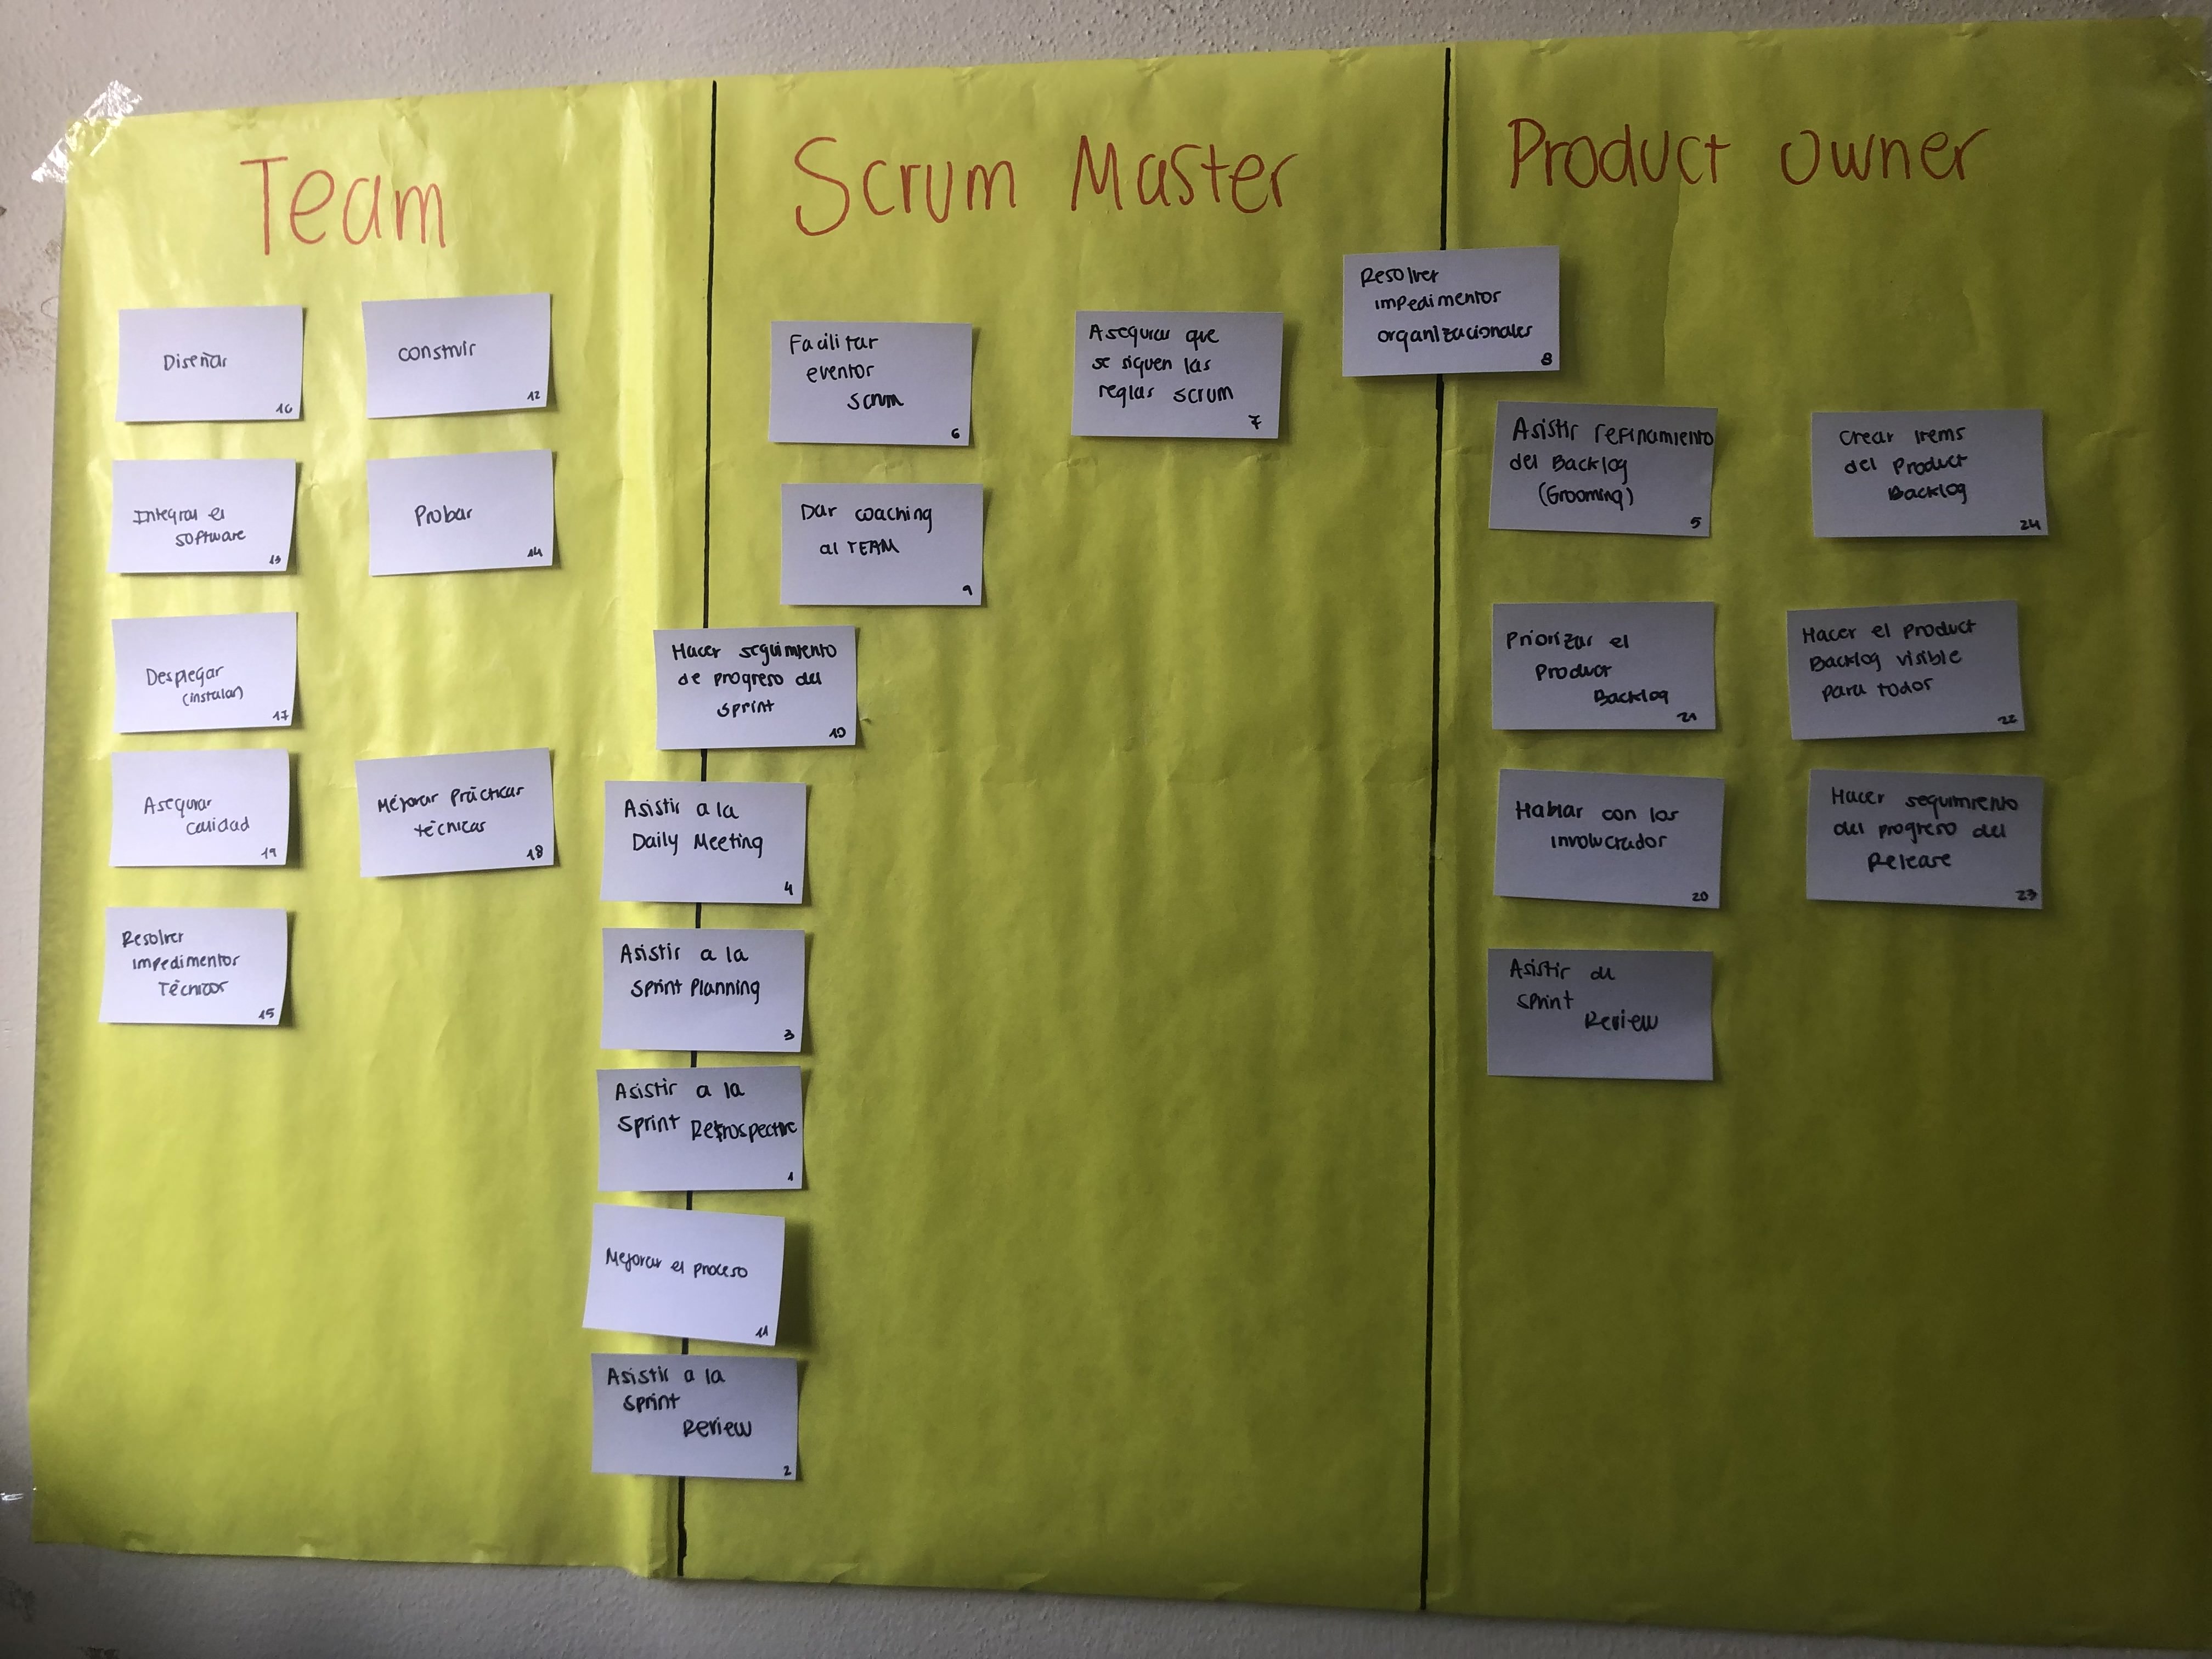 Team
Diseñar
16
construir
12
Integrar el
software
13
Probar
14
Desplegar
(instalar)
17
Asegurar
calidad
19
Mejorar Prácticas
técnicas
18
Resolver
impedimentos
Técnicos
15
Scrum Master
Facilitar
eventos
scrum
6
Asegurar que
se siguen las
reglas scrum
7
Dar coaching
al TEAM
9
Hacer seguimiento
de progreso del
sprint
10
Asistir a la
Daily Meeting
4
Asistir a la
Sprint Planning
3
Asistir a la
Sprint Retrospective
1
Mejorar el proceso
11
Asistir a la
sprint
Review
2
Resolver
impedimentos
organizacionales
8
Product Owner
Asistir refinamiento
del Backlog
(Grooming)
5
Crear Items
del Product
Backlog
24
Priorizar el
Product
Backlog
21
Hacer el Product
Backlog visible
para todos
22
Hablar con los
involucrados
20
Hacer seguimiento
del progreso del
Release
23
Asistir de
sprint
Review